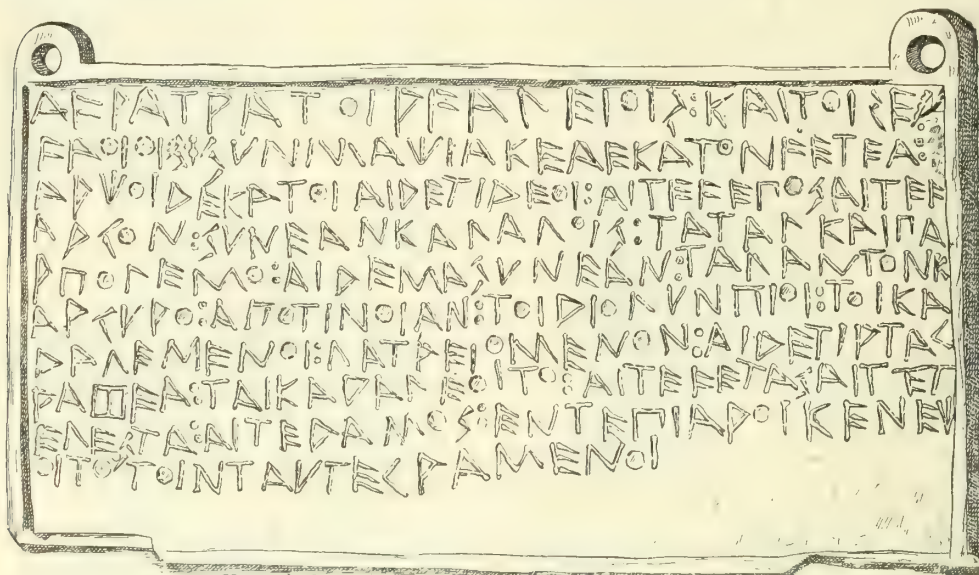 ΑϜΡΑΤΡΑΤΟΙΡϜΑΛΕΙΟΙΣ:ΚΑΙΤΟΙΣΕΡ
ϜΑΟΙΟΙΣ:ΣΥΝΜΑΨΙΑΚΕΑΕΚΑΤΟΝϜΕΤΕΑ:
ΑΡΨΟΙΔΕΚΑΤΟΙΑΙΔΕΤΙΔΕΟΙ:ΑΙΤΕϜΕΠΟΣΑΙΤΕϜ
ΑΡΓΟΝ:ΣΥΝΕΑΝΚΑΛΑΛΟΙΣ:ΤΑΤΑΛΚΑΙΠΑ
ΡΠΟΛΕΜΟ:ΑΙΔΕΜΑΣΥΝΕΑΝ:ΤΑΛΑΝΤΟΝΚ
ΑΡΓΥΡΟ:ΑΠΟΤΙΝΟΙΑΝ:ΤΟΙΔΙΟΛΥΝΠΙΟΙ:ΤΟΙΚΑ
ΔΑΛΕΜΕΝΟΙ:ΛΑΤΡΕΙΟΜΕΝΟΝ:ΑΙΔΕΤΙΡΤΑΓ
ΡΑΦΕΑ:ΤΑΙΚΑΔΑΛΕΟΙΤΟ:ΑΙΤΕϜΕΤΑΣΑΙΤΕΤ
ΕΛΕΣΤΑ:ΑΙΤΕΔΑΜΟΣ:ΕΝΤΕΠΙΑΡΟΙΚΕΝΕΨ
ΟΙΤΟΤΟΙΝΤΑΥΤΕΓΡΑΜΕΝΟΙ